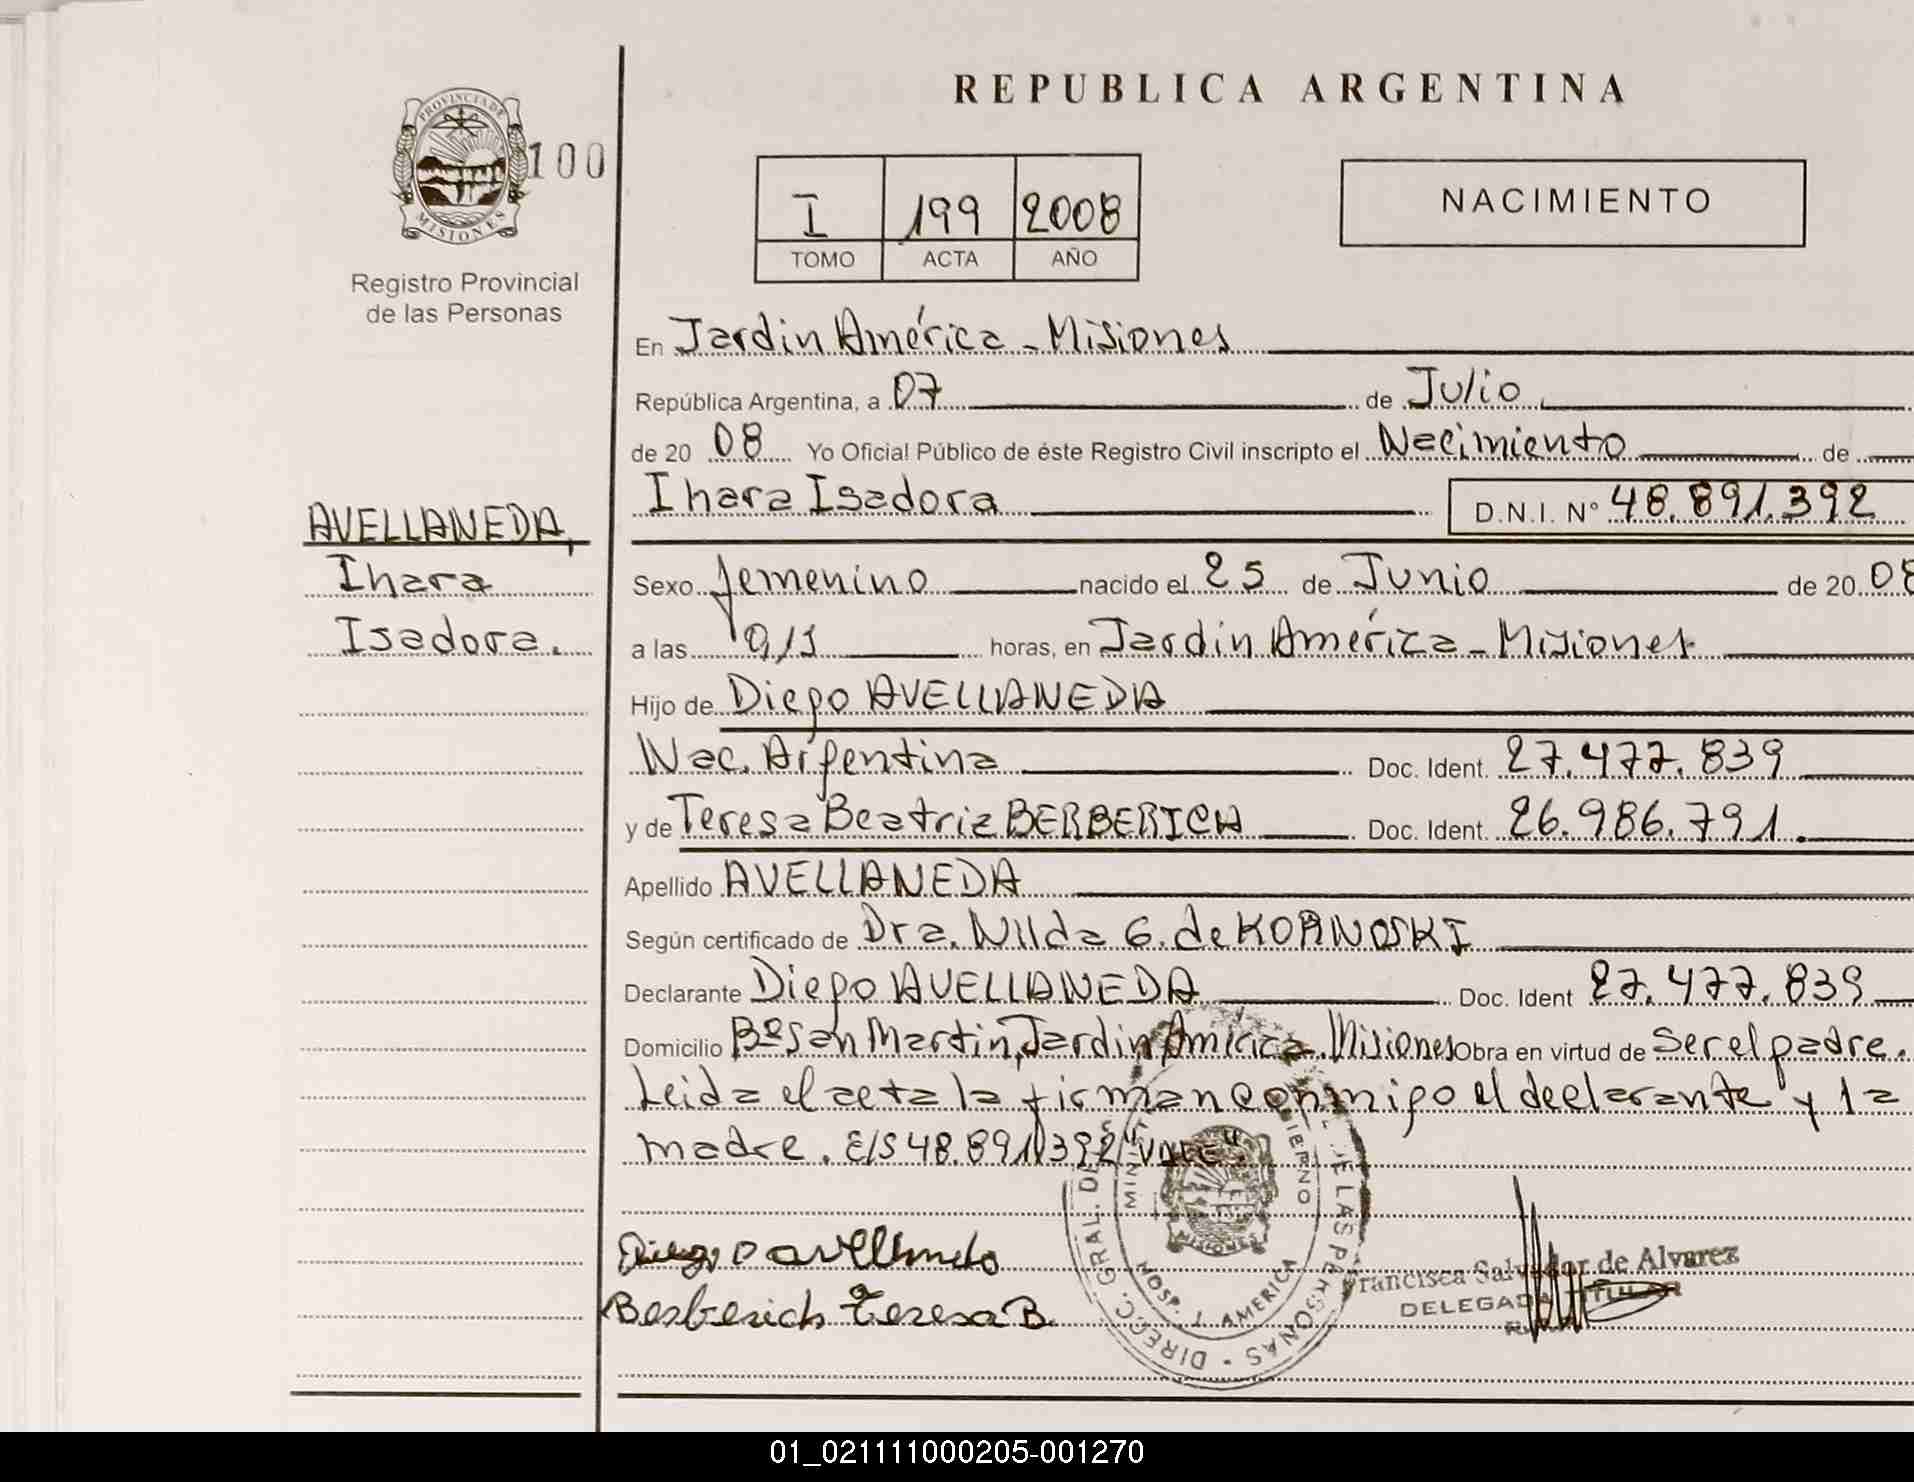 REPUBLICA ARGENTINA
PROVINCIA DE
MISIONES
100
I 199 2008
TOMO ACTA AÑO
NACIMIENTO
Registro Provincial
de las Personas
En Jardin América - Misiones
República Argentina, a 07 de Julio
de 20 08 Yo Oficial Público de éste Registro Civil inscripto el Nacimiento de
Ihara Isadora D.N.I. Nº 48.891.392
AVELLANEDA,
Ihara
Isadora.
Sexo femenino nacido el 25 de Junio de 20 08
a las horas, en Jardin América - Misiones
Hijo de Diego AVELLANEDA
Nac. Argentina Doc. Ident. 27.477.839
y de Teresa Beatriz BERBERICH Doc. Ident. 26.986.791.
Apellido AVELLANEDA
Según certificado de Dra. Nilda G. de KORNOSKI
Declarante Diego AVELLANEDA Doc. Ident 27.477.839
Domicilio Bº San Martin, Jardin América. Misiones Obra en virtud de Ser el padre.
Leida el acta la firman conmigo el declarante y la
madre. E/S 48.891.392 "VALE"
Diego avellaneda
Berberich Teresa B.
DIRECC. GRAL. DE LAS PERSONAS
HOSP. J. AMERICA
MISIONES
Francisca Salvador de Alvarez
DELEGADA TITULAR
01_021111000205-001270